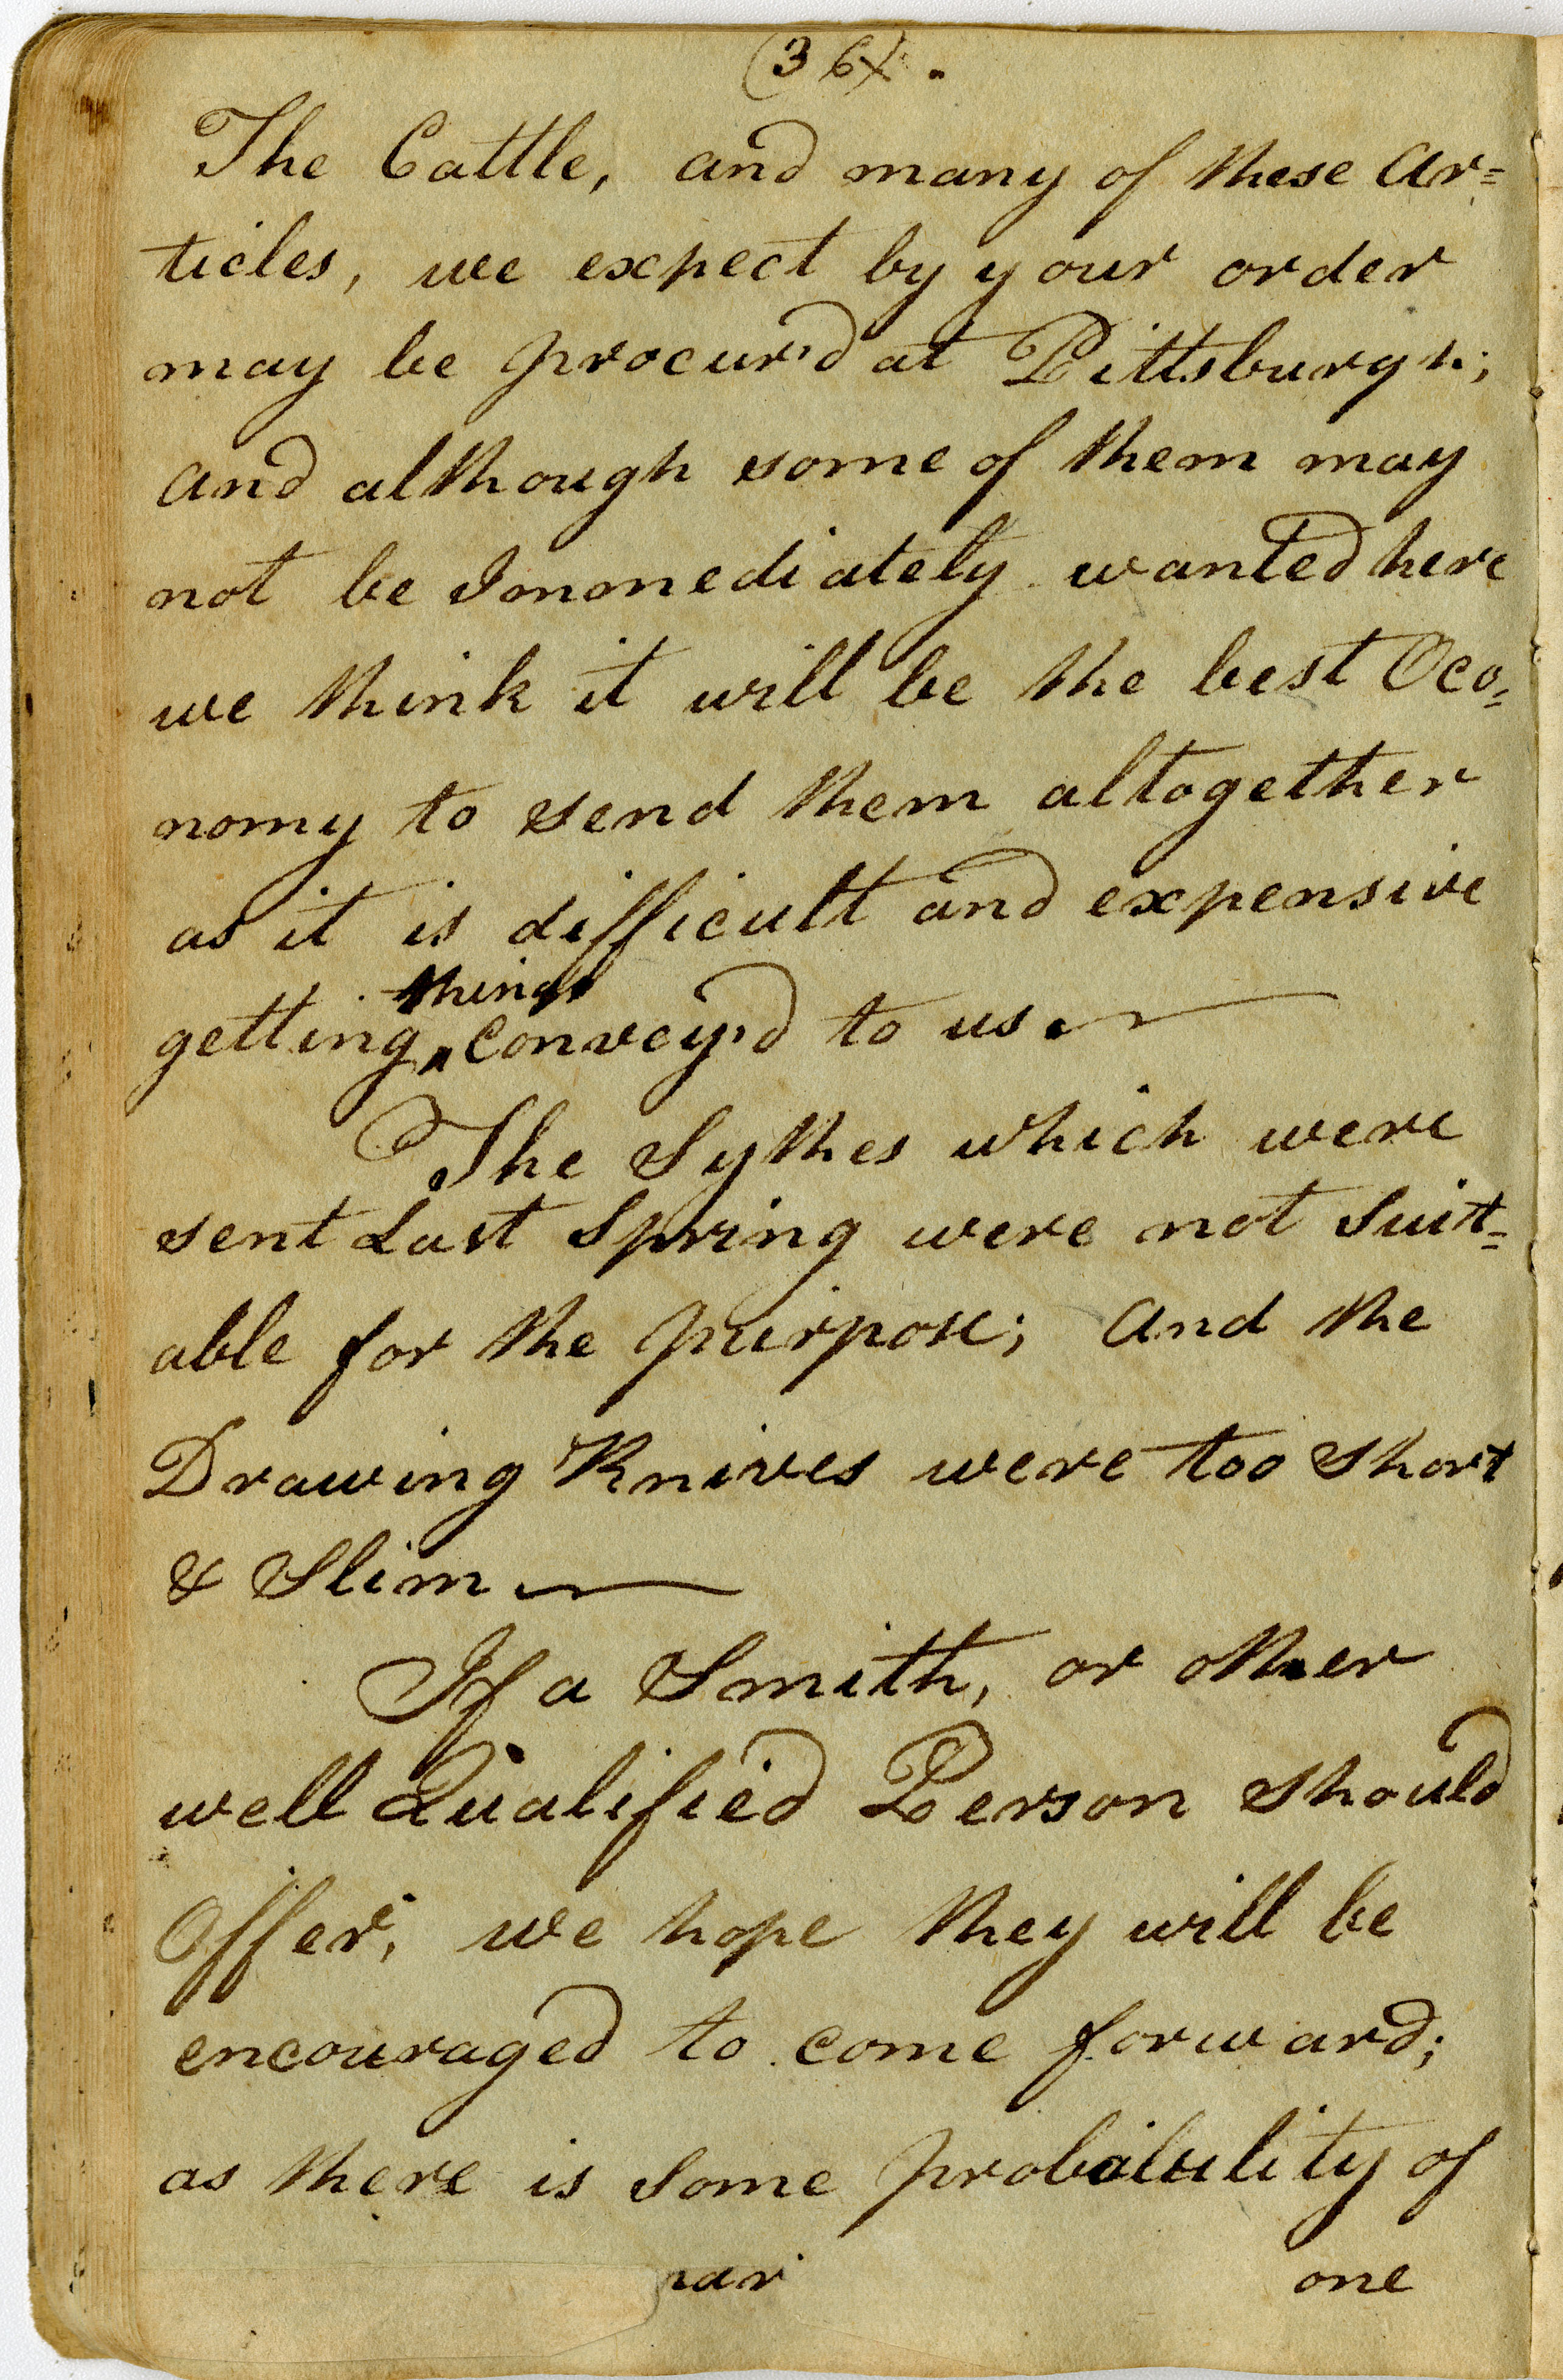 (36).
The Cattle, and many of these Ar=
ticles, we expect by your order
may be procur'd at Pittsburgh;
and although some of them may
not be Immediately wanted here
we think it will be the best Oco=
nomy to send them altogether
as it is difficult and expensive
things
getting ‸ convey'd to us.
The Sythes which were
sent Last Spring were not Suit=
able for the purpose; and the
Drawing Knives were too Short
& Slim
If a Smith, or other
well Qualified Person should
Offer, we hope they will be
encouraged to come forward;
as there is some probability of
one